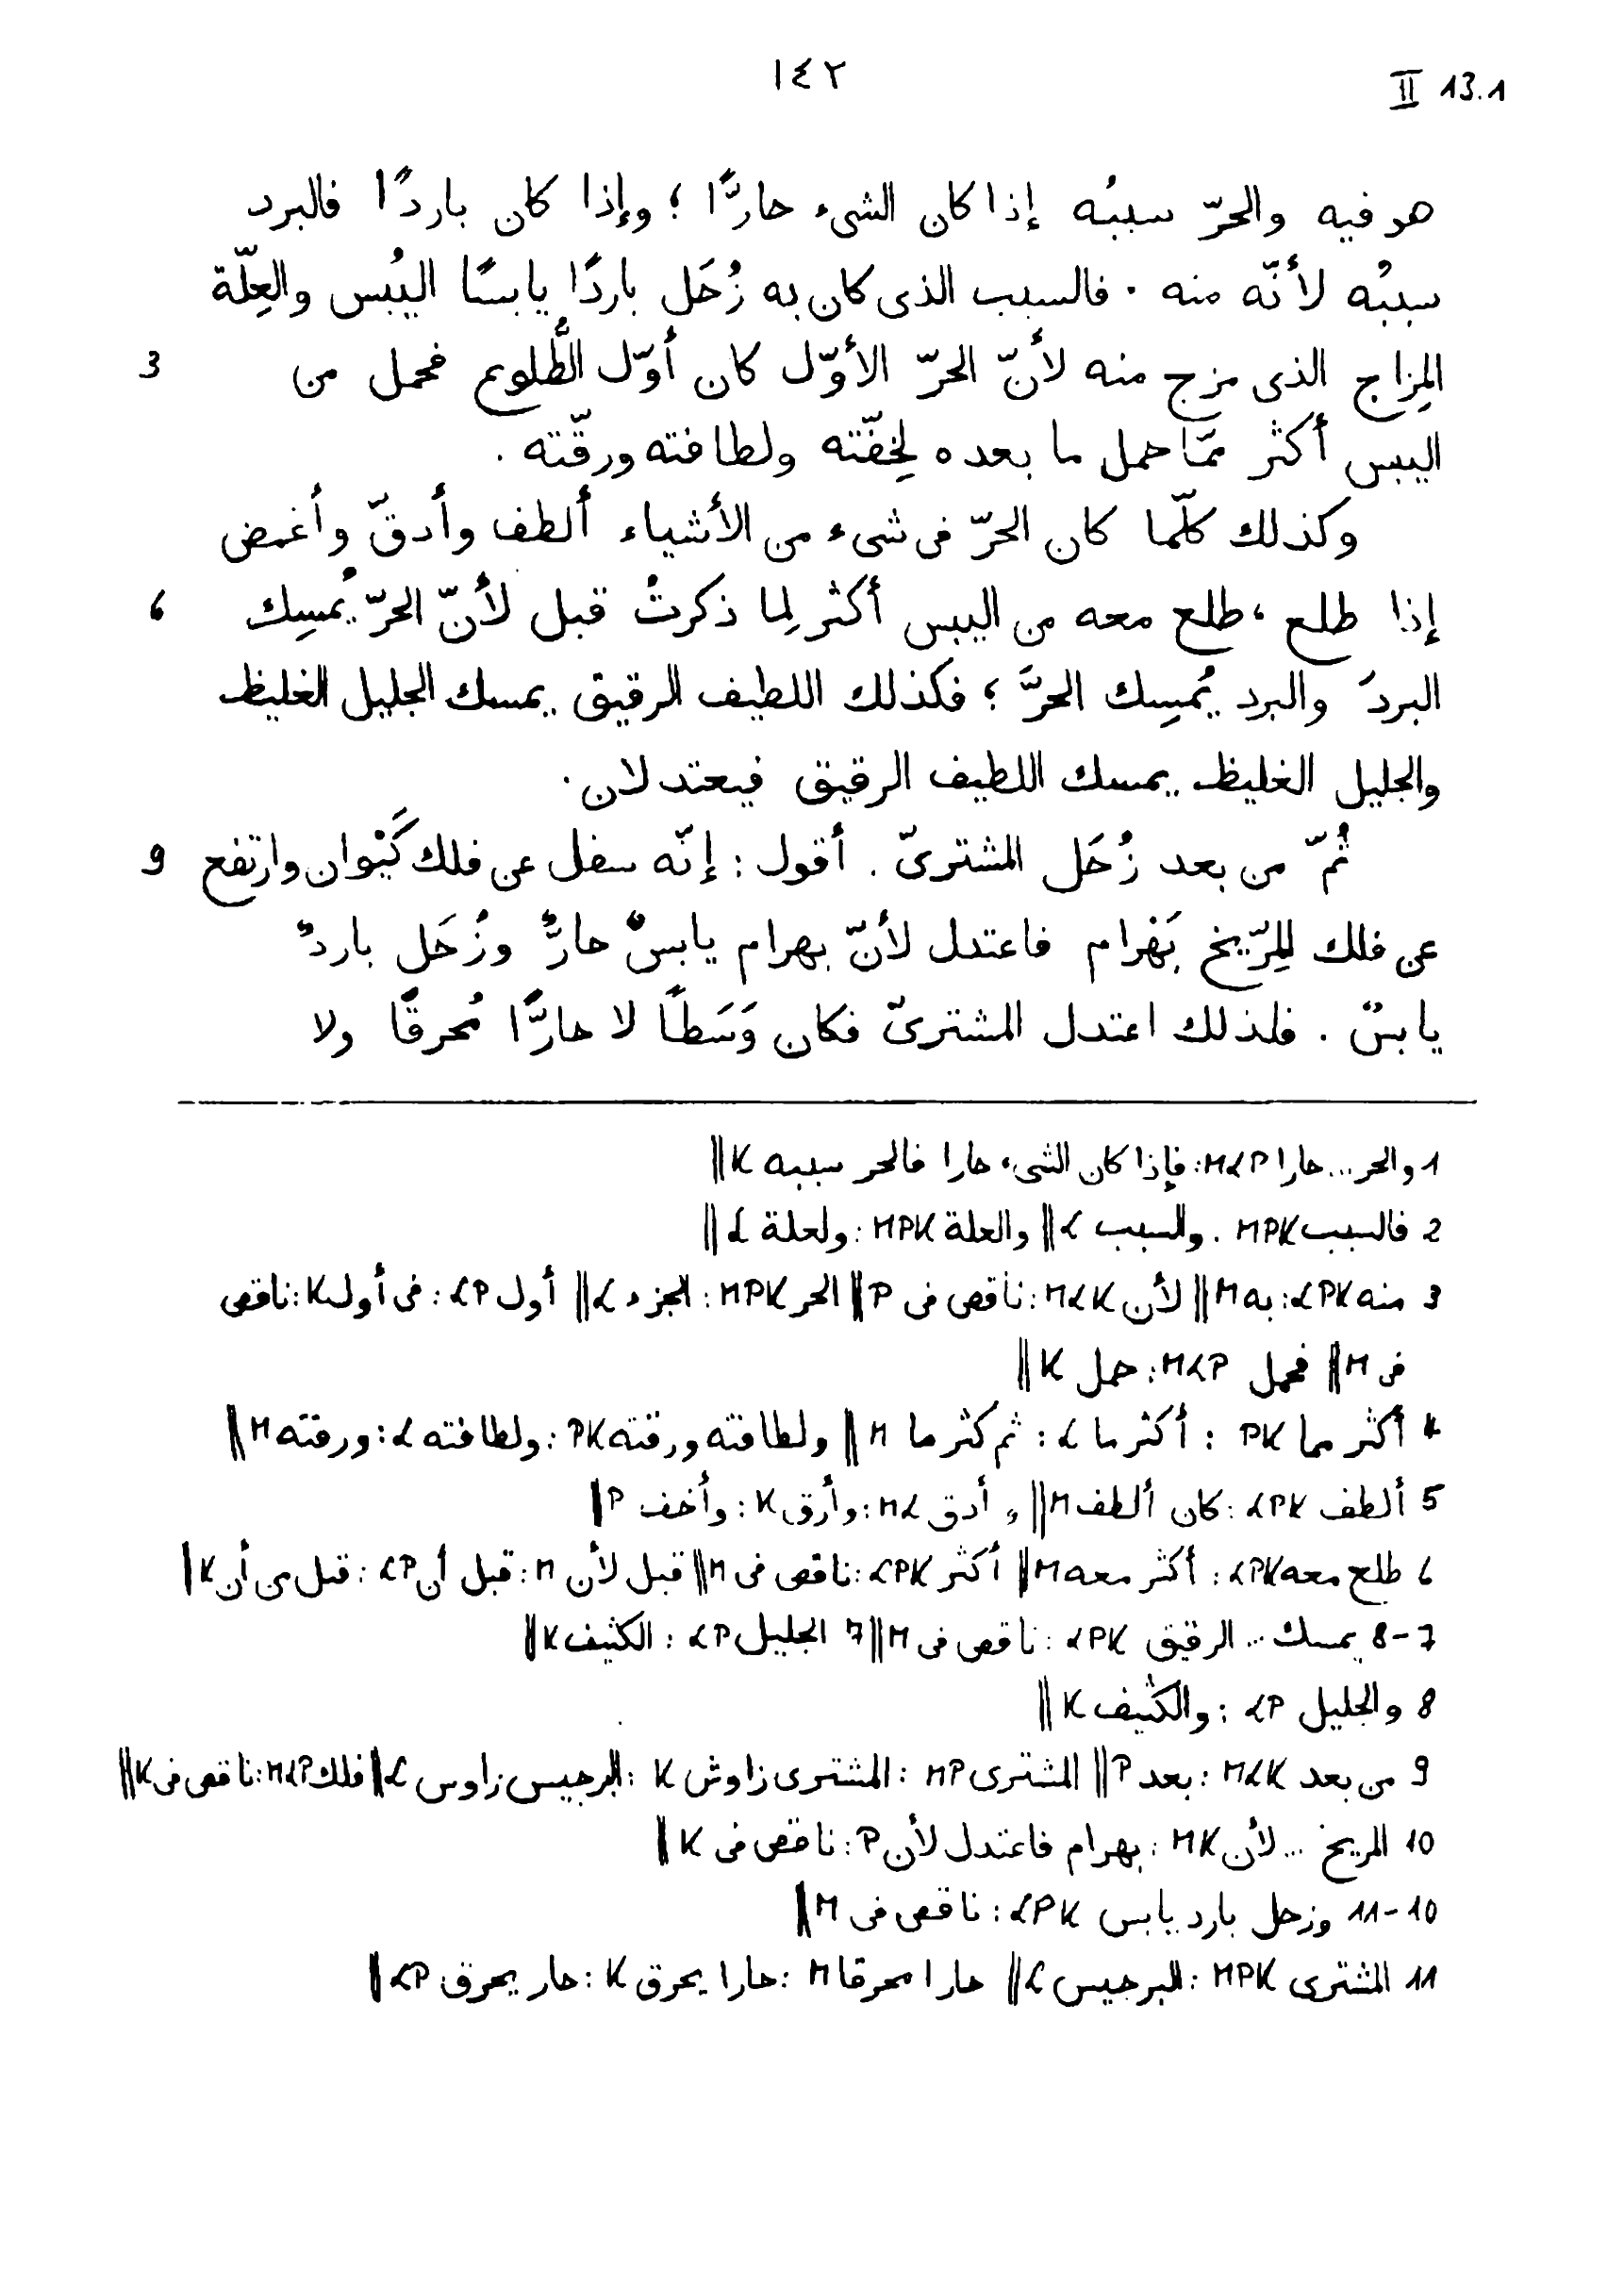 ١٤٢
II 13.1
هو فيه والحرّ سببُه إذا كان الشىء حارًّا ؛ وإذا كان باردًا فالبرد
سببُه لأنّه منه . فالسبب الذى كان به زُحَل باردًا يابسًا اليُبس والعِلّة
المِزاج الذى مزج منه لأنّ الحرّ الأوّل كان أوّل الطُّلوع فحمل من 3
اليبس أكثر ممّا حمل ما بعده لِخفّته ولطافته ورقّته .
وكذلك كلّما كان الحرّ فى شىء من الأشياء ألطف وأدقّ وأغمض
إذا طلع ، طلع معه من اليبس أكثر لِما ذكرتُ قبل لأنّ الحرّ يُمسِك 6
البردَ والبرد يُمسِك الحرَّ ؛ فكذلك اللطيف الرقيق يمسك الجليل الغليظ
والجليل الغليظ يمسك اللطيف الرقيق فيعتدلان .
ثُمّ من بعد زُحَل المشترىّ . أقول : إنّه سفل عن فلك كَيْوان وارتفع 9
عن فلك المِرّيخ بَهْرام فاعتدل لأنّ بهرام يابسٌ حارٌّ وزُحَل باردٌ
يابسٌ . فلذلك اعتدل المشترىّ فكان وَسَطًا لا حارًّا مُحرقًا ولا
1 والحر... حارا MLP: فإذا كان الشىء حارا فالحر سببه K ||
2 فالسبب MPK . والسبب L || والعلة MPK : ولعلة L ||
3 منه LPK: به M || لأن MLK : ناقص فى P || الحر MPK : الجزء L || أول LP : فى أول K: ناقص
فى M || فحمل MLP: حمل K ||
4 أكثر مما PK : أكثر ما L : ثم كثر ما M || ولطافته ورقته PK : ولطافته L : ورقته M ||
5 ألطف LPK : كان ألطف M || وأدق ML : وأرق K : وأخف P ||
6 طلع معه LPK : أكثر معه M || أكثر LPK : ناقص فى M || قبل لأن M : قبل أن LP : قبل من أن K ||
7-8 يمسك ... الرقيق LPK : ناقص فى M || 7 الجليل LP : الكثيف K ||
8 والجليل LP : والكثيف K ||
9 من بعد MLK : بعد P || المشترى MP : المشترى زاوش K : البرجيس زاوس L || فلك MLP: ناقص فى K ||
10 المريخ ... لأن MK : بهرام فاعتدل لأن P : ناقص فى K ||
10-11 وزحل بارد يابس LPK : ناقص فى M ||
11 المشترى MPK : البرجيس L || حارا محرقا M : حارا يحرق K : حار يحرق LP ||